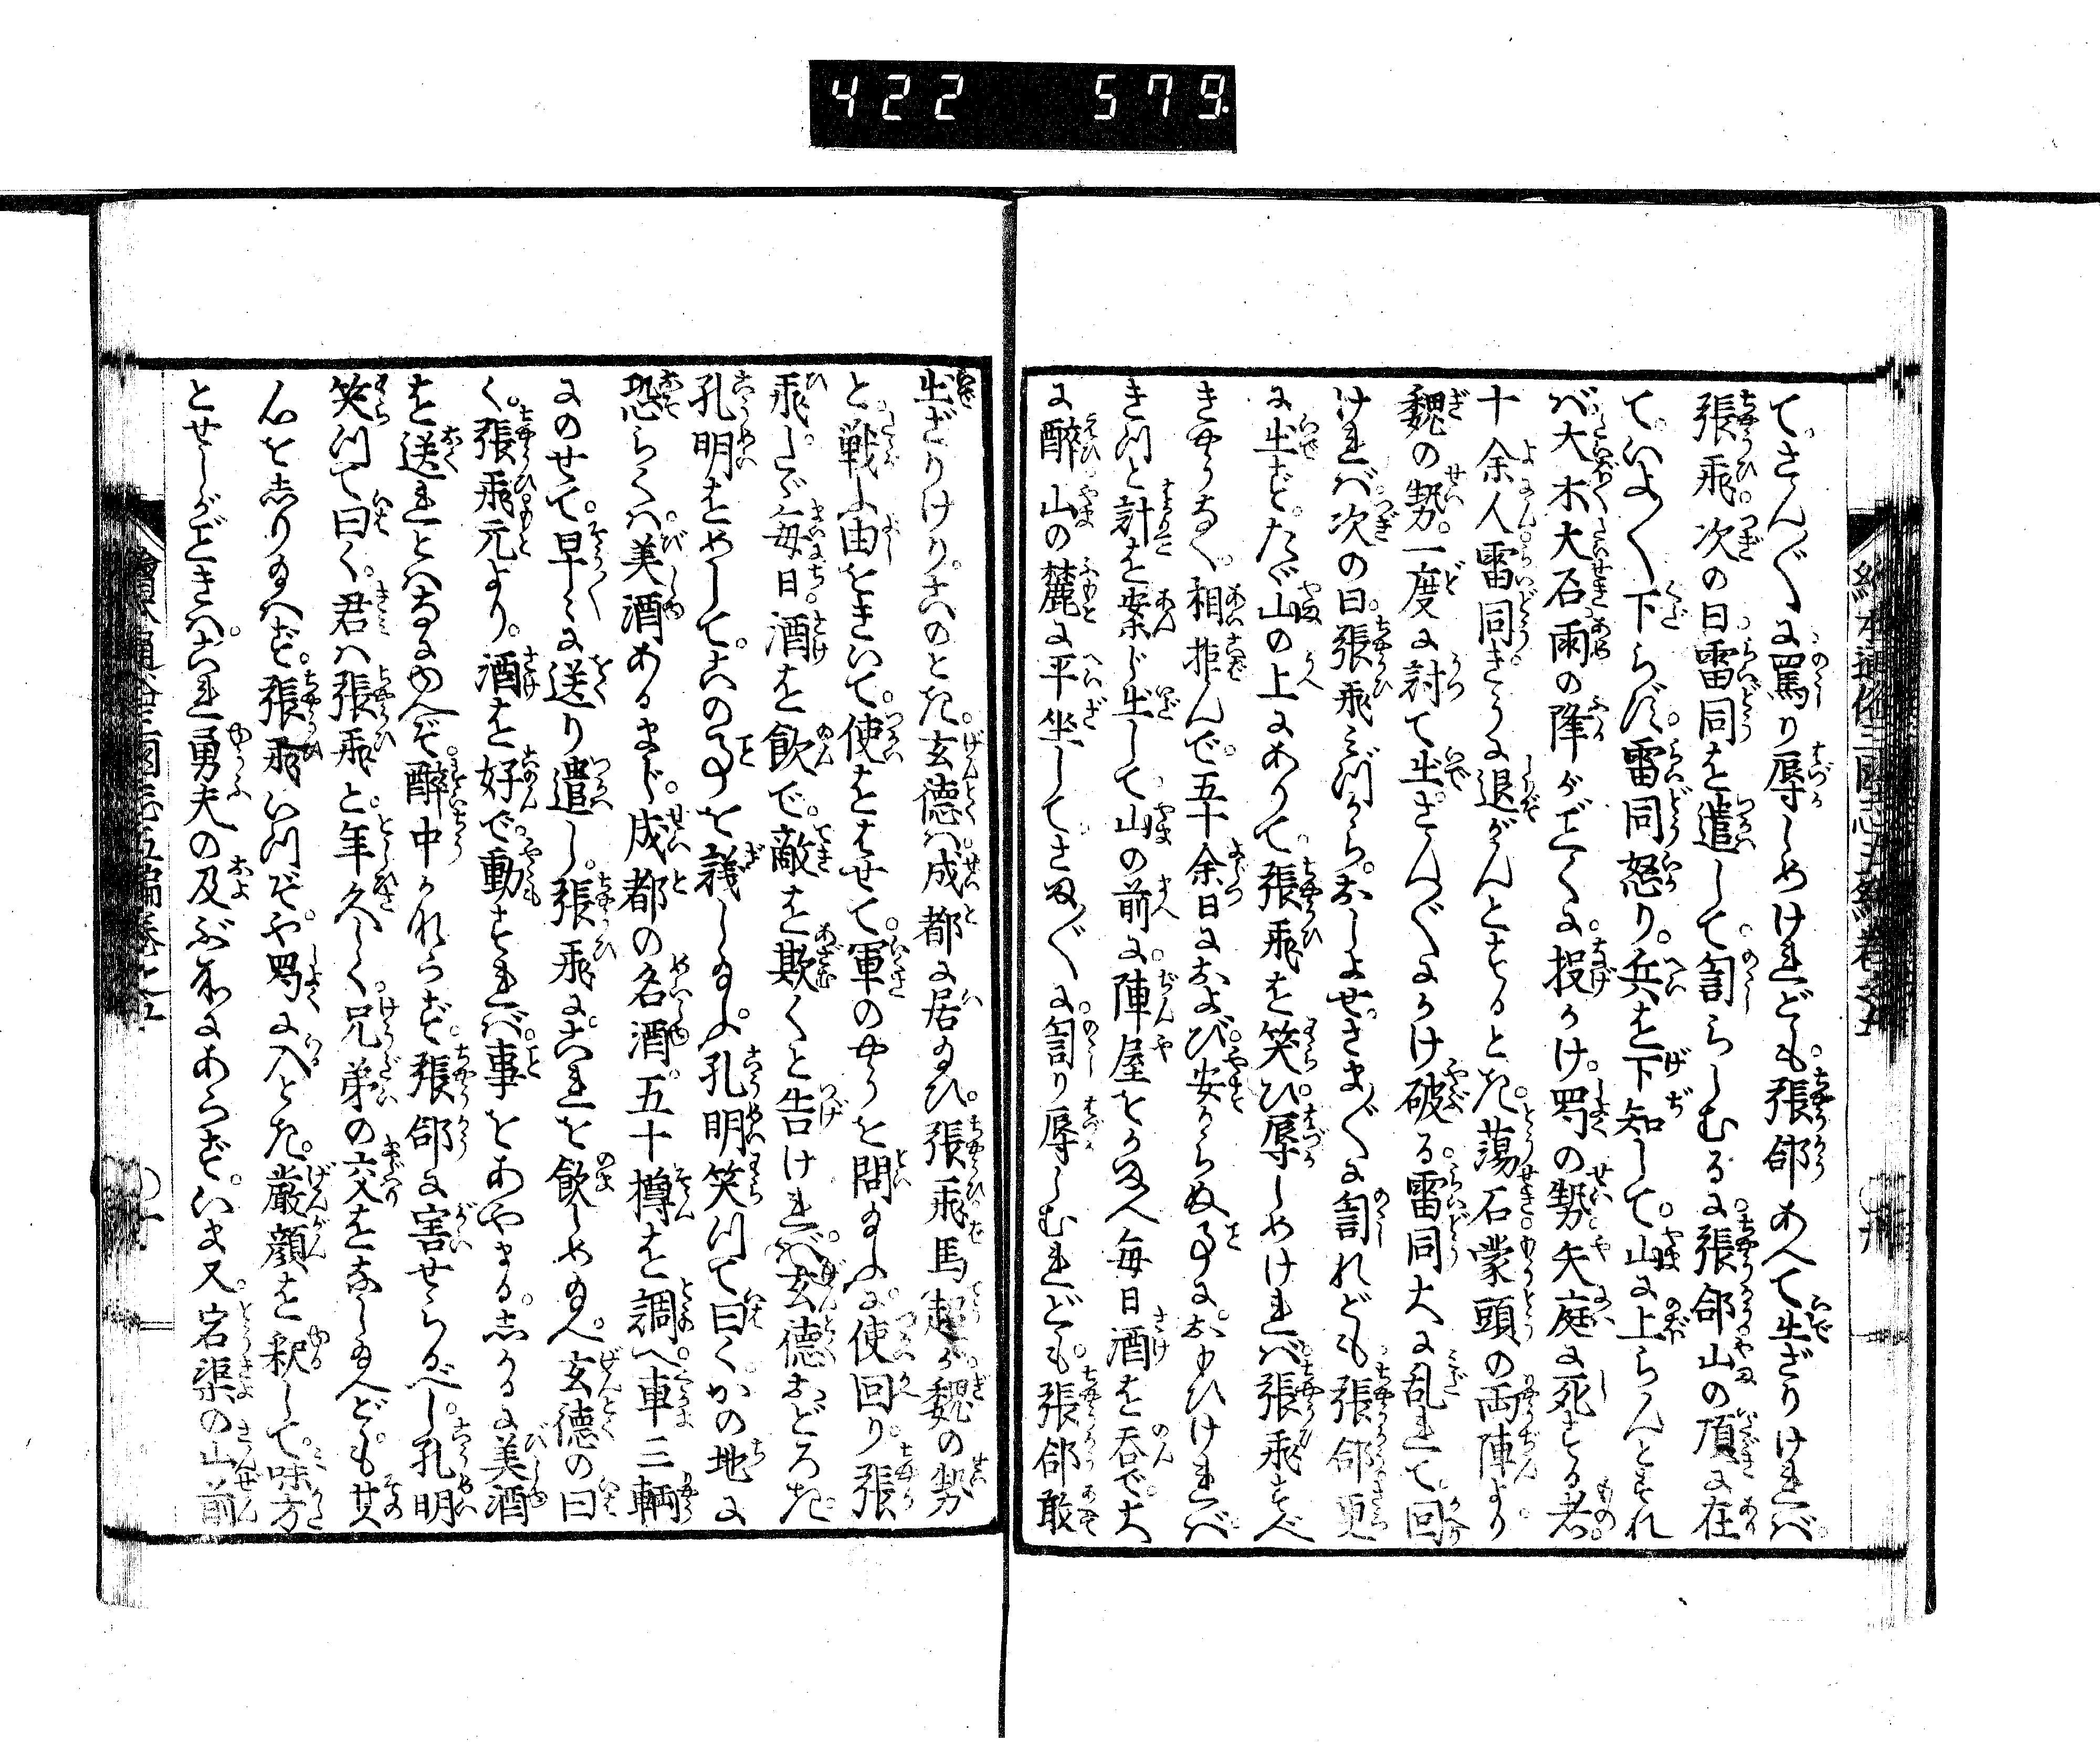 422 579.
絵本通俗三国志五編巻之五
てさん〴〵に罵り辱しめけれども。張郃あへて出ざりければ。
張飛。次の日雷同を遣して罵らしむるに。張郃山の頂に在
て。いよ〳〵下らず。雷同怒り。兵を下知して。山に上らんとすれ
ば。大木大石雨の降がごとくに。投かけ。蜀の勢矢庭に死する者。
十余人雷同きうに退がんとするとき。蕩石蒙頭の両陣より。
魏の勢。一度に討て出さん〴〵にかけ破る。雷同大に乱れて。回
ければ。次の日。張飛みづから。おしよせ。さま〴〵に罵れども。張郃更
に出ず。たゞ山の上にありて。張飛を笑ひ。辱しめければ。張飛すべ
きやうなく。相拒んで。五十余日におよび。安からぬ事に。おもひければ。
きつと計を案じ出して。山の前に。陣屋をかまへ毎日酒を呑で。大
に酔。山の麓に平坐してさま〴〵に。罵り辱しむれども。張郃敢
出ざりけり。このとき。玄徳は。成都に居給ひ。張飛。馬超が。魏の勢
と。戦ふ由をきいて。使をはせて。軍のやうを問給ふに。使回り。張
飛。しで毎日。酒を飲で。敵を欺くと告ければ。玄徳おどろき。
孔明をめして。此の事を議し給ふ。孔明笑つて曰く。かの地に
恐らくハ。美酒あるまじ。成都の名酒。五十樽を調へ。車三輌
にのせて。早々に送り遣し。張飛にこれを飲しめ給へ。玄徳の曰
く。張飛。元より。酒を好で。動すれば。事をあやまる。しかるに美酒
を送れとハなにゆへぞ。酔中かならず。張郃に害せらるべし。孔明
笑つて曰く。君ハ張飛と。年久しく。兄弟の交をなし給へども。其
心をしり給ハず。張飛いつぞや。蜀に入とき。厳顔を釈して。味方
とせしがごときハ。これ勇夫の及ぶ所にあらず。いま又。宕渠の山前